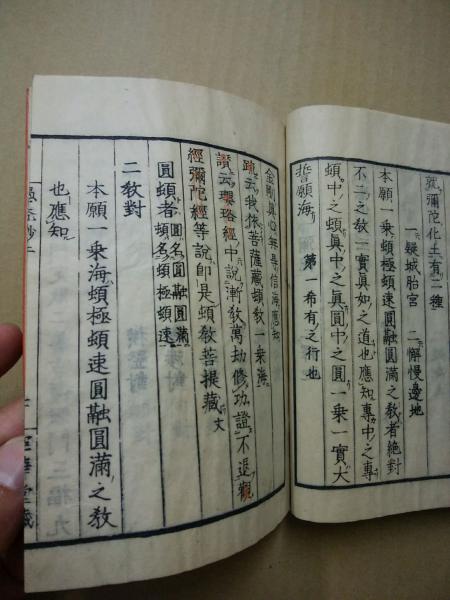 就彌陀化土有二種
一疑城胎宮 二懈慢邊地
本願一乗頓極頓速圓融圓滿之教者絶對
不二之教一實真如之道也應知專中之專
頓中之頓眞中之眞圓中之圓一乗一實大
誓願海 第一希有之行也
金剛眞心無㝵信海應知
疏云我依菩薩藏頓教一乗海
讃云瓔珞經中説漸教萬劫修功證不退觀
經彌陀經等説即是頓教菩提藏文
圓頓者圓名圓融圓滿
頓名頓極頓速
二教對
本願一乗海頓極頓速圓融圓滿之教
也應知